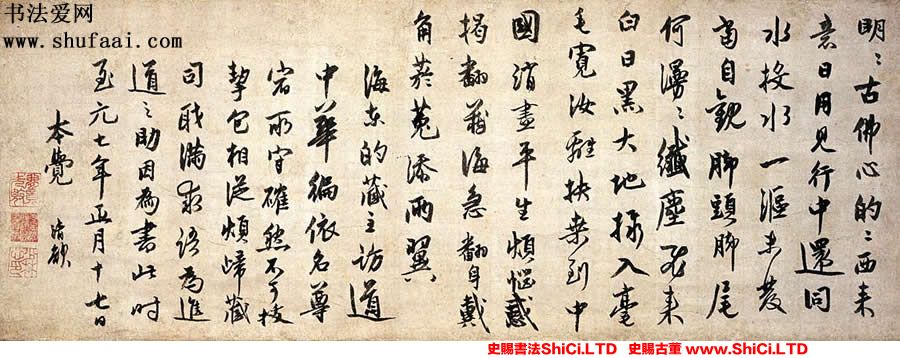 书法爱网
www.shufaai.com
明〻古佛心的〻西来
意日用見行中還同
水投水一漚未發
當自観脚頭脚尾
何漫〻纖塵飛来
白日黒大地掃入毫
毛寛汝離扶桒到中
國消盡平生煩惱惑
掲翻蔵海急翻身戴
角菸菟添兩翼
海東的蔵主訪道
中華徧依名尊
宿所守確然不可枝
包相従煩歸蔵
司職滿求語為進
道之助因為書此時
至元七年正月十七日
本覺 清欲
史賜書法ShiCi.LTD 史賜古董 www.ShiCi.LTD